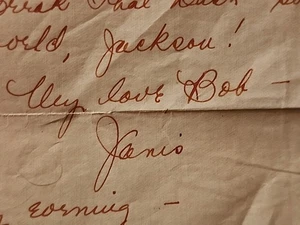 break that
world, Jackson!
My love, Bob —
Janis
evening —